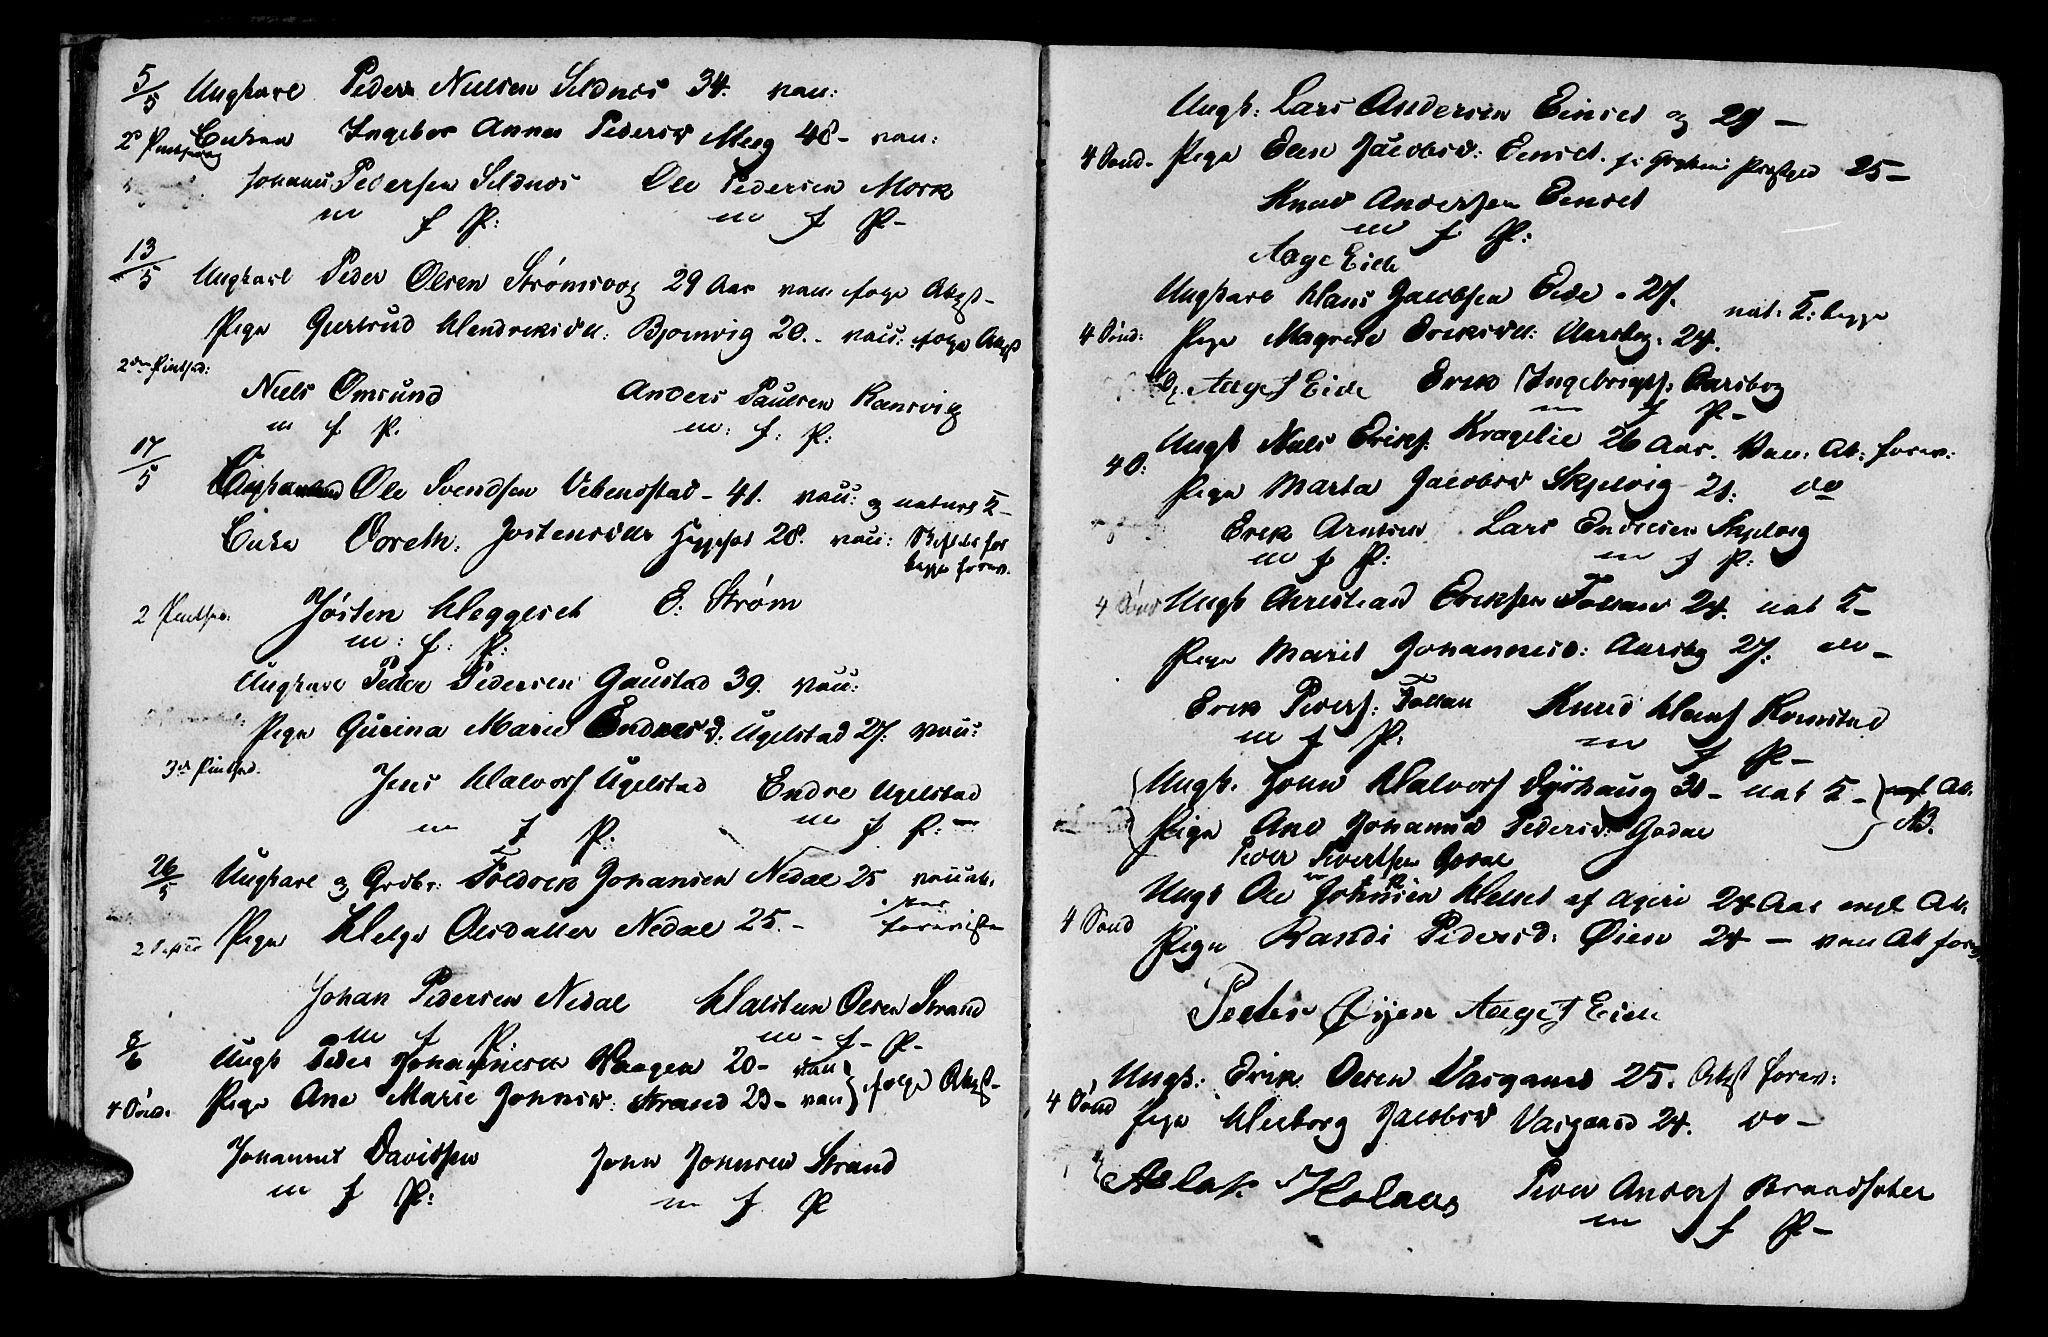 5/5 Ungkarl Peder Nielsen Sildnes 34. vac:
Enken Ingebor Anna Pedersd Meeg 48- vac:
Johannes Pedersen Sildnes Ole Pedersen Mork
m f P: m f P-
13/5 Ungkarl Peder Olsen Strømsvog 29 Aar vac. følge Atest-
Pige Gertrud Hendriksdtt: Bjornvig 20.- vac: følge Atest
2den Pintsed:
Niels Omsund Anders Paulsen Ransvig
m f P. m: f: P:
17/5 Ole Svendsen Vebenstad- 41. vac: og naturl
Enke Doreth: Jostensdtt 28. vac:
begge forev.
2 Pintsed: Jøsten Heggeset E: Strøm
m: f: P:
Ungkarl Peder Pedersen Gaustad 39. vac:
Pige Gurina Marie Endresd: Ugelstad 27. vac:
3die Pintsed.
Jens Halvors Ugelstad Endre Ugelstad
m f P: m f P:
26/5 Ungkarl og Grdbr: Fredrek Johansen Nedal 25
Pige Helge Olsdatter Nedal 25.-
Johan Pedersen Nedal Halsten Olsen Strand
m f P: m- f- P-
8/6 Ungk Peder Johannesen Vaagen 20- vac
4 Sönd. Pige Ane Marie Johnsd: Strand 23- vac } følge Atest-
Johannes Davidsen John Johnsen Strand
m f P: m f P
Ungk: Lars Andersen Einset og 29-
4 Sönd- Pige Elen Jacobsd: Eenset. Præstgjed 25-
Knud Andersen Eenset
m f P:
Aage Eide
Ungkarl Hans Jacobsen Eide - 27. nat: begge
4 Sönd: Pige Magrete Eriksdtt: Aarsbog. 24.
Aage J Eide Erik Ingebrigts: Aarsbog
m f P-
Ungk Niels Eriks. Kragelie 26 Aar. Vac. At: forev:
4 S: Pige Marta Jacobsd Skjelvig 21: do
Erik Arntsen Lars Endresen Skjelvig
m f P: m f P:
4 Sönd Ungk Christian Eriksen Follan 24. nat
Pige Marit Johannesd: Aarsbog 27: do-
Erik Peders: Follan Knud Hans Romstad
m f P: m f P-
Ungk. John Halvors Dyrhaug 30- nat
Pige Ane Johanna Pedersd: Godal NB.
Peder Sivertsen Godal
m f P
Ungk Ole Johnsen Helset af Ageri 24 Aar At.
4 Sönd Pige Randi Pedersd: Øien 24- vac At forev
Peder Øijen Aage J Eide
Ungk: Erik Olsen Vasgaard 25. Atest forev:
4 Sönd Pige Heborg Jacobsd Vasgaard 24. do-
Aslak Holaas Peder Anders Brandsater
m f P-